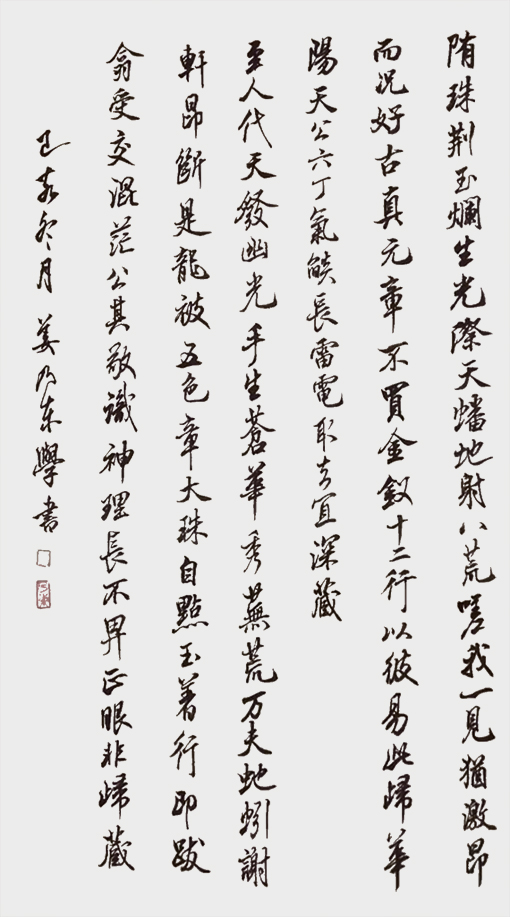 隋珠荆玉爛生光際天蟠地射八荒嗟我一見猶激昂
而況好古真元章不買金釵十二行以彼易此歸華
陽天公六丁氣燄長雷電取去宜深藏
至人代天發幽光手生蒼華秀蕪荒万夫虵蚓謝
軒昂斷是龍被五色章大珠自點玉著行印跋
翕受交混茫公其敬識神理長不畀正眼非歸藏
己亥冬月姜乃東學書